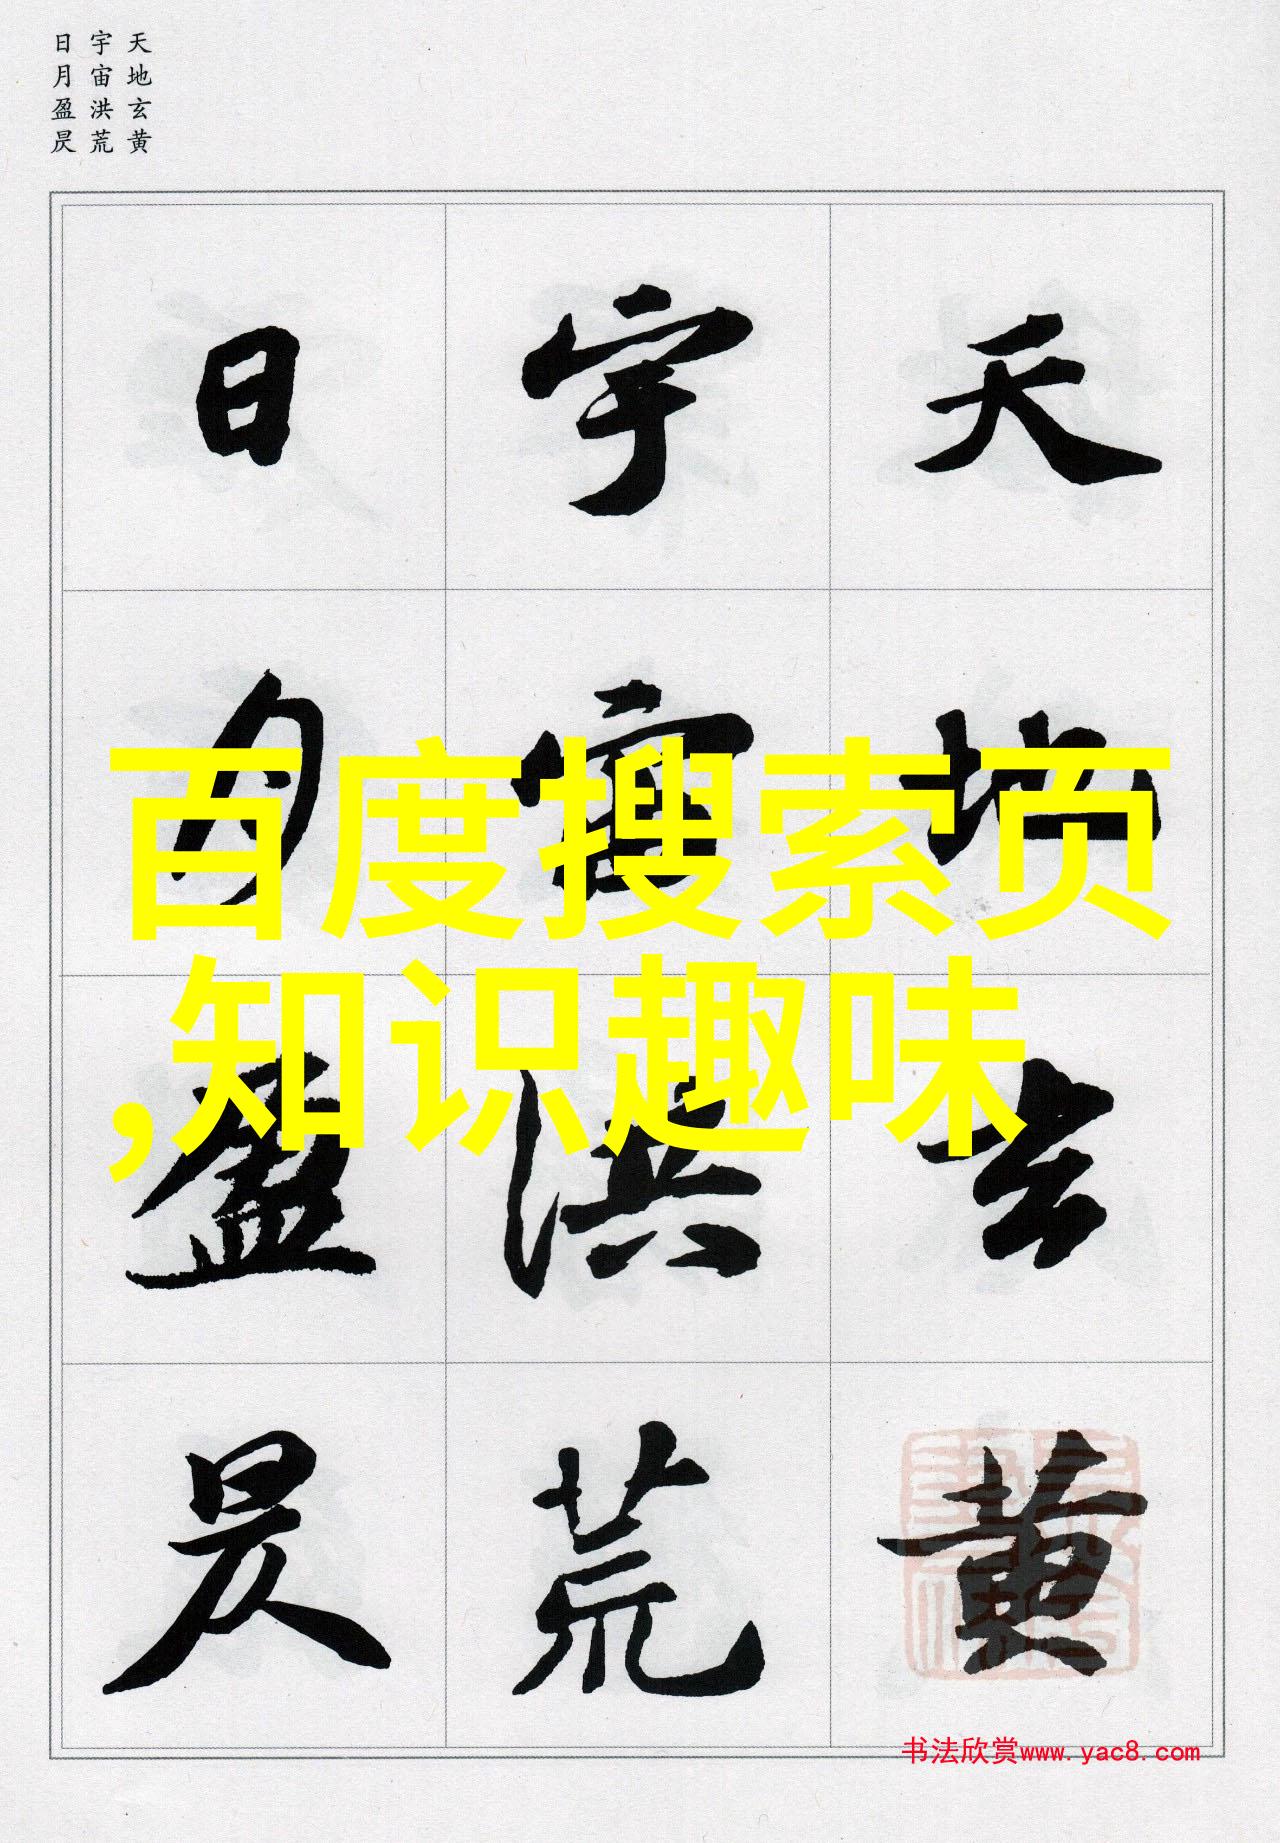 天地玄黄
宇宙洪荒
日月盈昃
天地玄黄
宇宙洪荒
日月盈昃
百度搜索页
,知识趣味
书法欣赏www.yac8.com